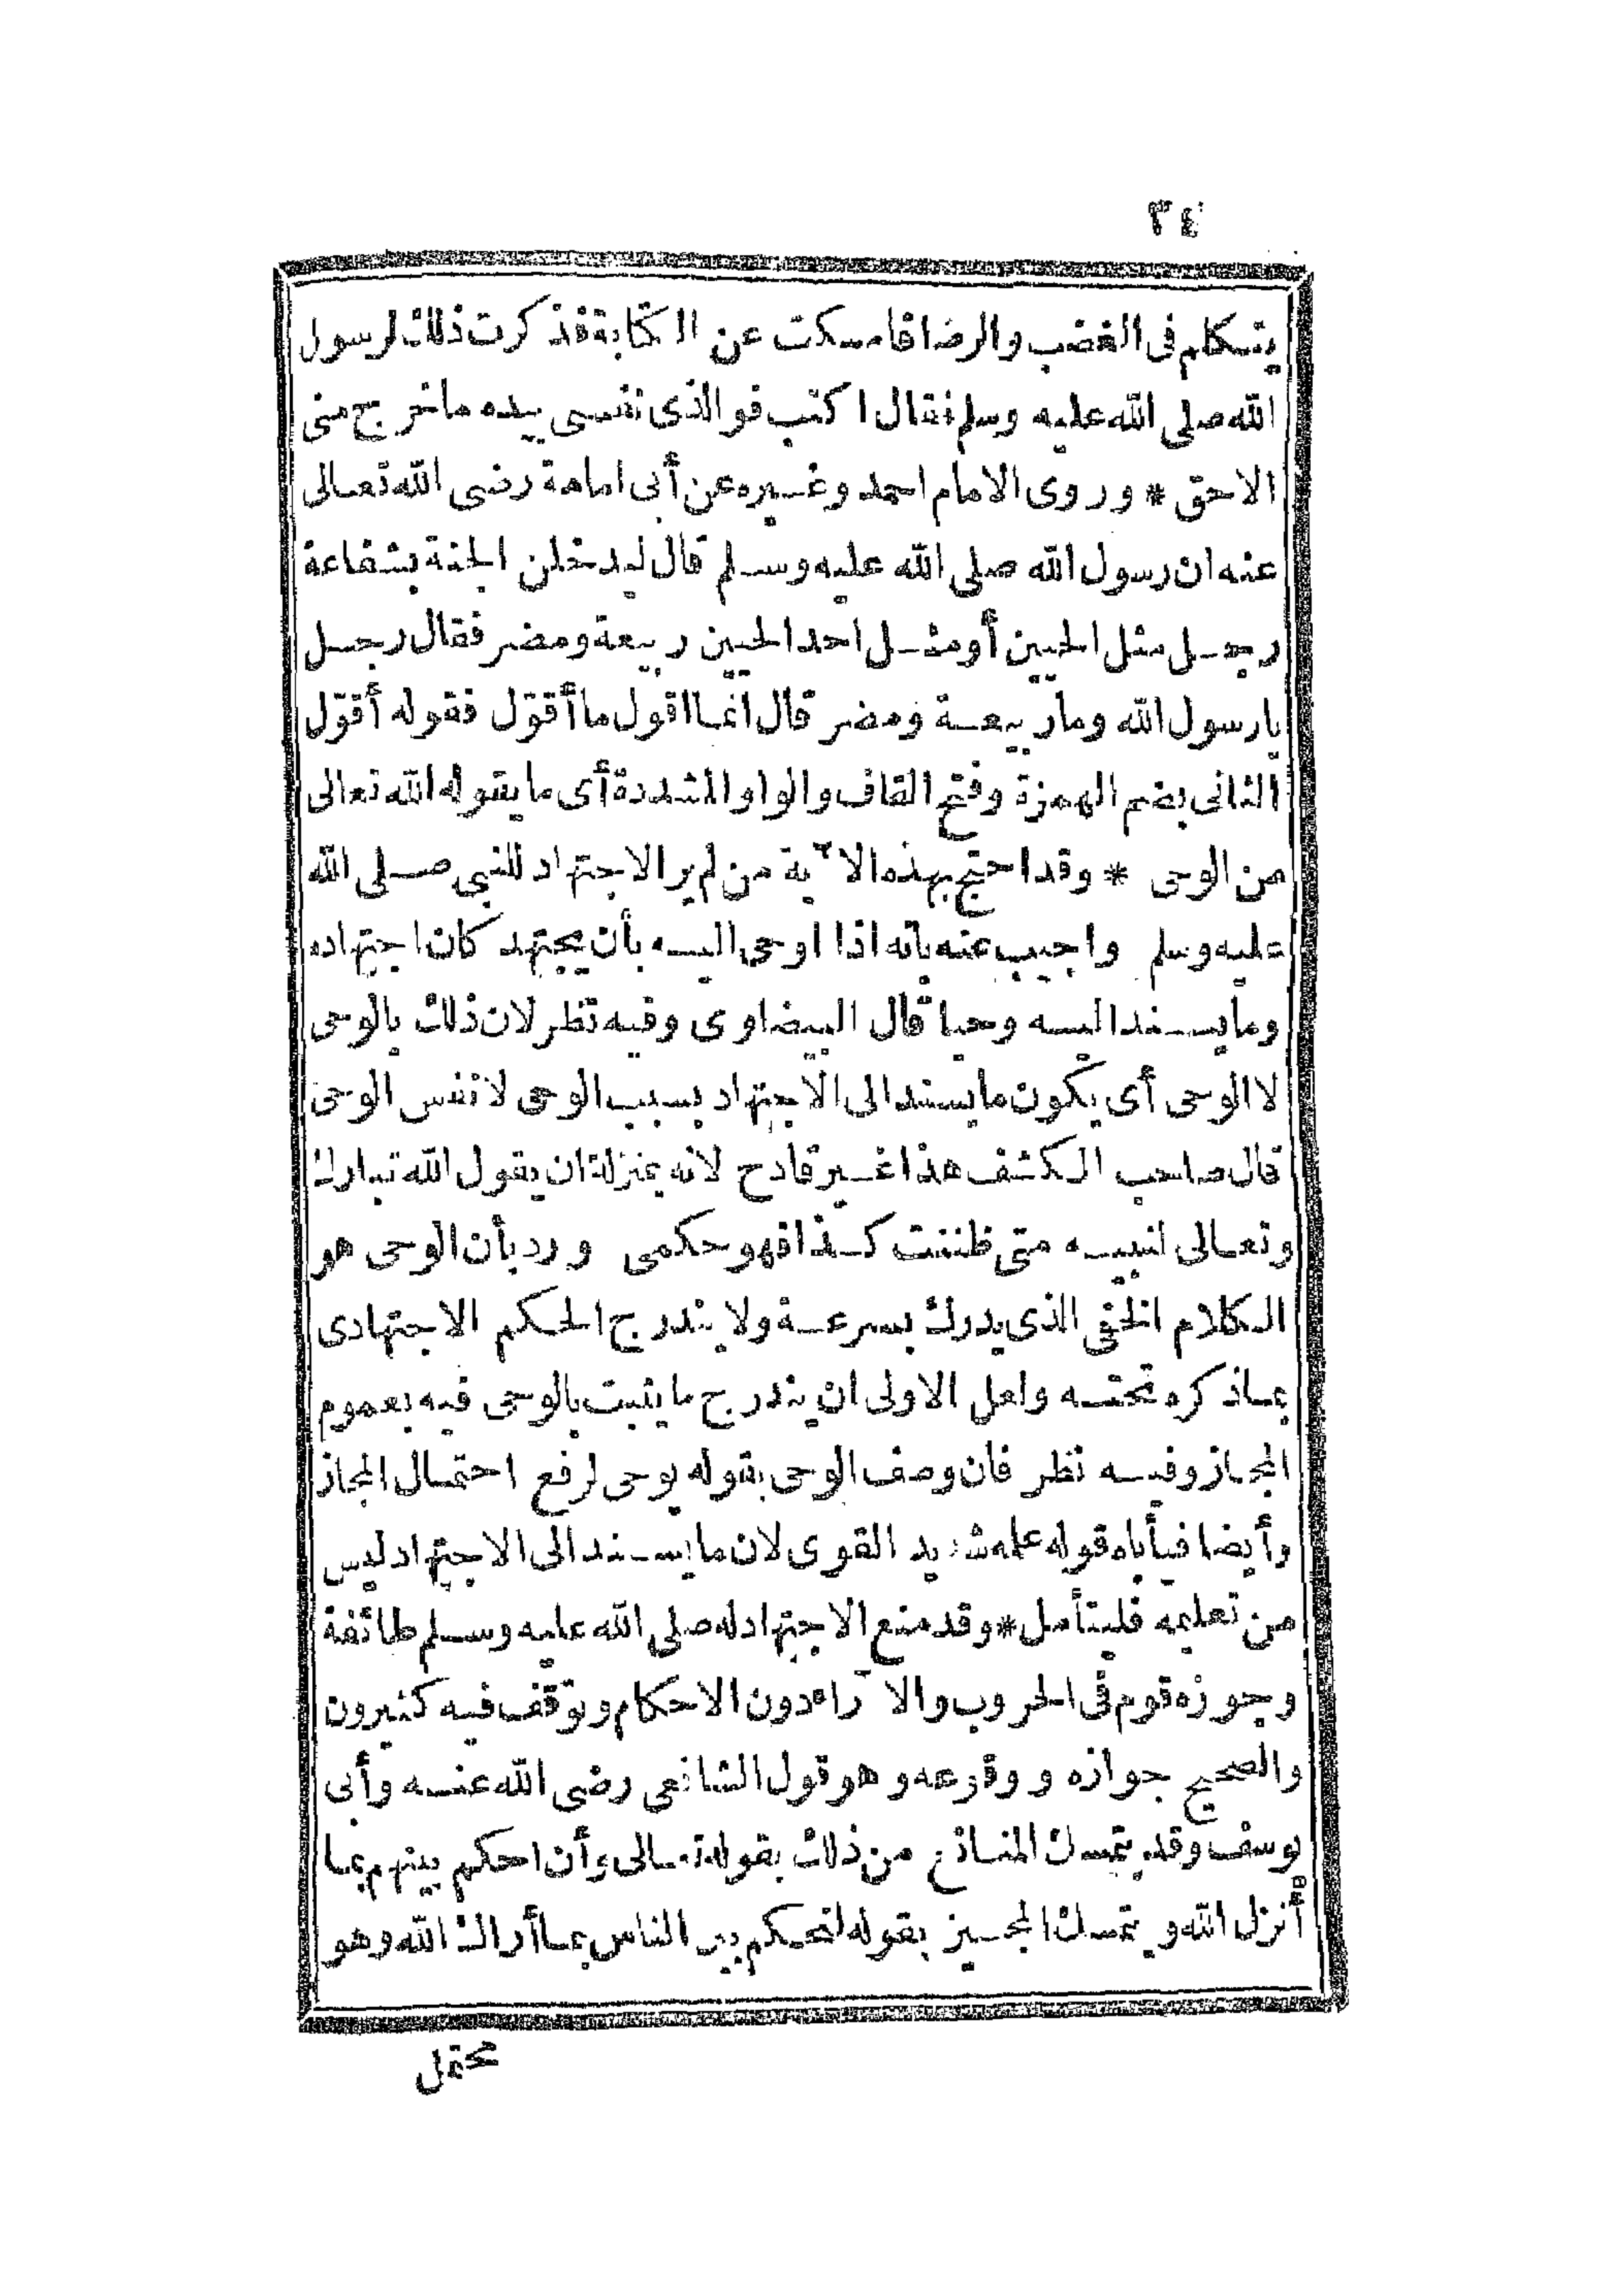 ٣٤
يتكلم فى الغضب والرضا فامسكت عن الكتابة فذ كرت ذلك لرسول
الله صلى الله عليه وسلم فقال اكتب فوالذى نفسى بيده ما خرج منى
الاحق * وروى الامام احمد وغيره عن أبى امامة رضى الله تعالى
عنه ان رسول الله صلى الله عليه وسلم قال ليدخلن الجنة بشفاعة
رجل مثل الحيين أو مثل احد الحيين ربيعة ومضر فقال رجل
يارسول الله وما ربيعة ومضر قال انما اقول ما أقوّل فقوله أقوّل
الثانى بضم الهمزة وفتح القاف والواو المشددة أى ما يقوله الله تعالى
من الوحى * وقد احتج بهذه الآية من لم ير الاجتهاد للنبى صلى الله
عليه وسلم واجيب عنه بانه اذا اوحى اليه بأن يجتهد كان اجتهاده
وما يسند اليه وحيا قال البيضاوى وفيه نظر لان ذلك بالوحى
لا الوحى أى يكون ما يسند الى الاجتهاد بسبب الوحى لا نفس الوحى
قال صاحب الكشف هذا غير قادح لانه بمنزلة ان يقول الله تبارك
وتعالى لنبيه متى ظننت كذا فهو حكمى ورد بأن الوحى هو
الكلام الخفى الذى يدرك بسرعة ولا يندرج الحكم الاجتهادى
بماذ كره تحته ولعل الاولى ان يندرج ما يثبت بالوحى فيه بعموم
المجاز وفيه نظر فان وصف الوحى بقوله يوحى لرفع احتمال المجاز
وأيضا فيأباه قوله علمه شديد القوى لان ما يسند الى الاجتهاد ليس
من تعليمه فليتأمل * وقد منع الاجتهاد له صلى الله عليه وسلم طائفة
وجوزه قوم فى الحروب والآراء دون الاحكام وتوقف فيه كثيرون
والصحيح جوازه ووقوعه وهو قول الشافعى رضى الله عنه وأبى
يوسف وقد يتمسك المنازع من ذلك بقوله تعالى وأن احكم بينهم بما
أنزل الله ويتمسك المجيز بقوله لتحكم بين الناس بما أراك الله وهو
محتمل